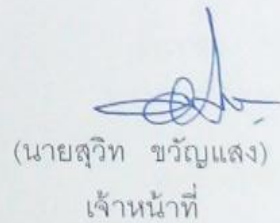 (นายสุวิท ขวัญแสง)
เจ้าหน้าที่